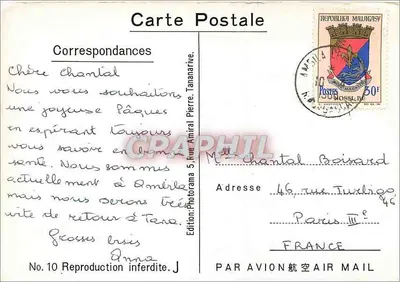 Carte Postale
Correspondances
Chère Chantal
Nous vous souhaitons
une joyeuse Pâques
en espérant toujours
vous savoir en bonne
santé. Nous sommes
actuellement à
mais nous serons très
vite de retour à Tana.
Grosses bises
Anna
No. 10 Reproduction interdite. J
Edition: Photorama 5, Rue Amiral Pierre, Tananarive.
CPARAMA
REPOBLIKA MALAGASY
POSTES 30F
NOSSI-BE
Mlle Chantal Boisard
Adresse 46, rue Turbigo
46
Paris IIIe
FRANCE
PAR AVION 航空 AIR MAIL